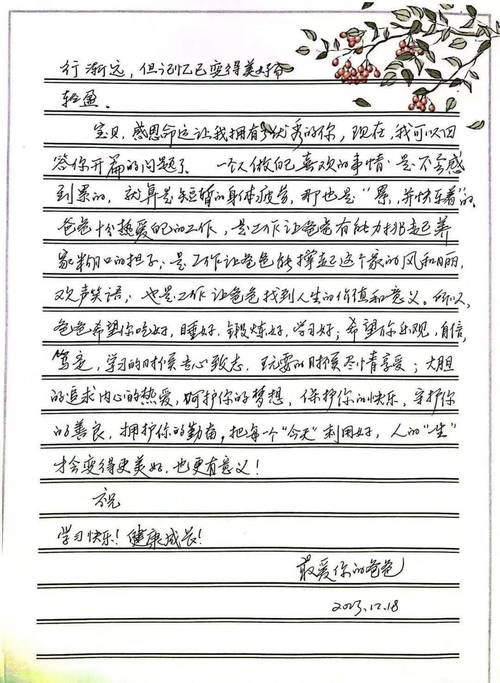 行渐远，但记忆已变得美好而
轻盈。
宝贝，感恩命运让我拥有了优秀的你，现在，我可以回
答你开篇的问题了。一个人做自己喜欢的事情是不会感
到累的，就算是短暂的身体疲劳，那也是“累，并快乐着”的。
爸爸十分热爱自己的工作，是工作让爸爸有能力担起养
家糊口的担子；是工作让爸爸能撑起这个家的风和日丽，
欢声笑语；也是工作让爸爸找到人生的价值和意义。所以，
爸爸希望你吃好，睡好，锻炼好，学习好；希望你乐观，自信，
笃定，学习的时候专心致志，玩耍的时候尽情享受；大胆
的追求内心的热爱，呵护你的梦想，保护你的快乐，守护你
的善良，拥护你的勤奋，把每个“今天”利用好，人的“一生”
才会变得更美好，也更有意义！
祝
学习快乐！健康成长！
最爱你的爸爸
2023.12.18